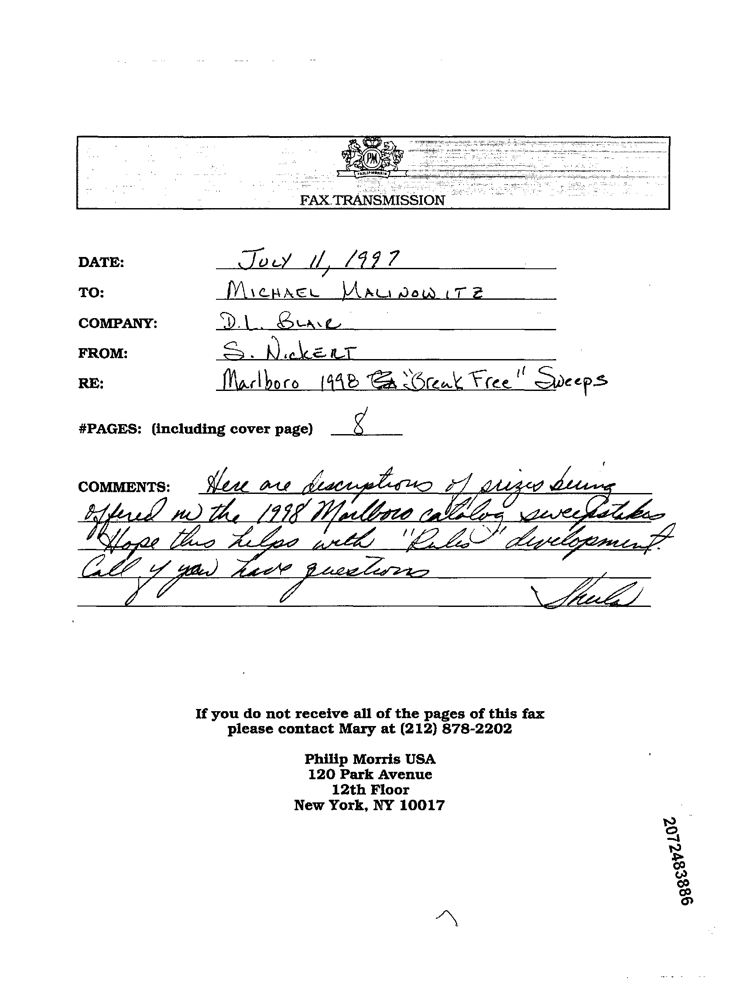 PM
FAX TRANSMISSION
DATE: July 11, 1997
TO: Michael Malinowitz
COMPANY: D.L. Blair
FROM: S. Nickert
RE: Marlboro 1998 "Break Free" Sweeps
#PAGES: (including cover page) 8
COMMENTS: Here are descriptions of prizes being
offered in the 1998 Marlboro catalog sweepstakes
Hope this helps with "Rules" development.
Call if you have questions
Sheila
If you do not receive all of the pages of this fax
please contact Mary at (212) 878-2202
Philip Morris USA
120 Park Avenue
12th Floor
New York, NY 10017
2072483886